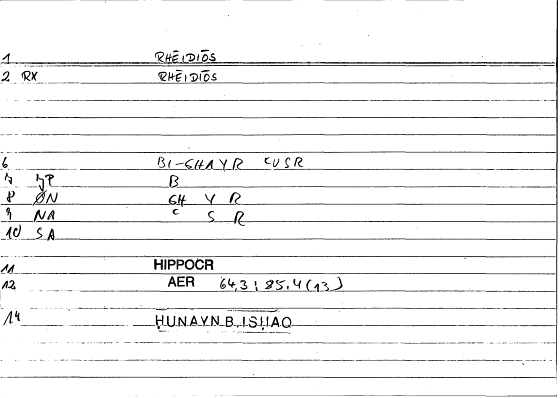 1 RHĒIDIŌS
2 RX RHĒIDIŌS
6 BI-GHAYR ʿUSR
7 JP B
8 ØN GH Y R
9 NA ʿ S R
10 SA
11 HIPPOCR
12 AER 64.3 : 85.4 (13)
14 ḤUNAYN B. ISḤAQ